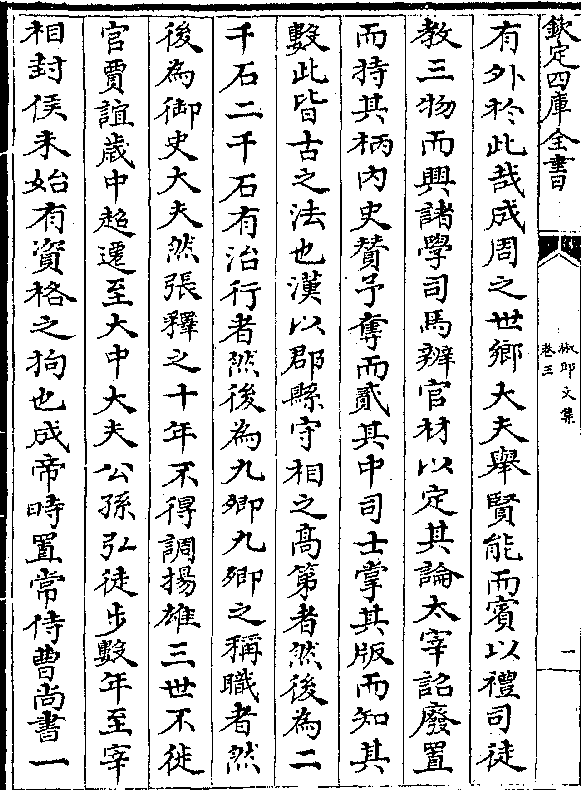 欽定四庫全書
椒邱文集
卷三
一
有外於此哉成周之世鄉大夫舉賢能而賓以禮司徒
教三物而興諸學司馬辨官材以定其論太宰詔廢置
而持其柄内史贊予奪而貳其中司士掌其版而知其
數此皆古之法也漢以郡縣守相之髙第者然後為二
千石二千石有治行者然後為九卿九卿之稱職者然
後為御史大夫然張釋之十年不得調揚雄三世不徙
官賈誼歲中超遷至大中大夫公孫弘徒步數年至宰
相封侯未始有資格之拘也成帝時置常侍曹尚書一